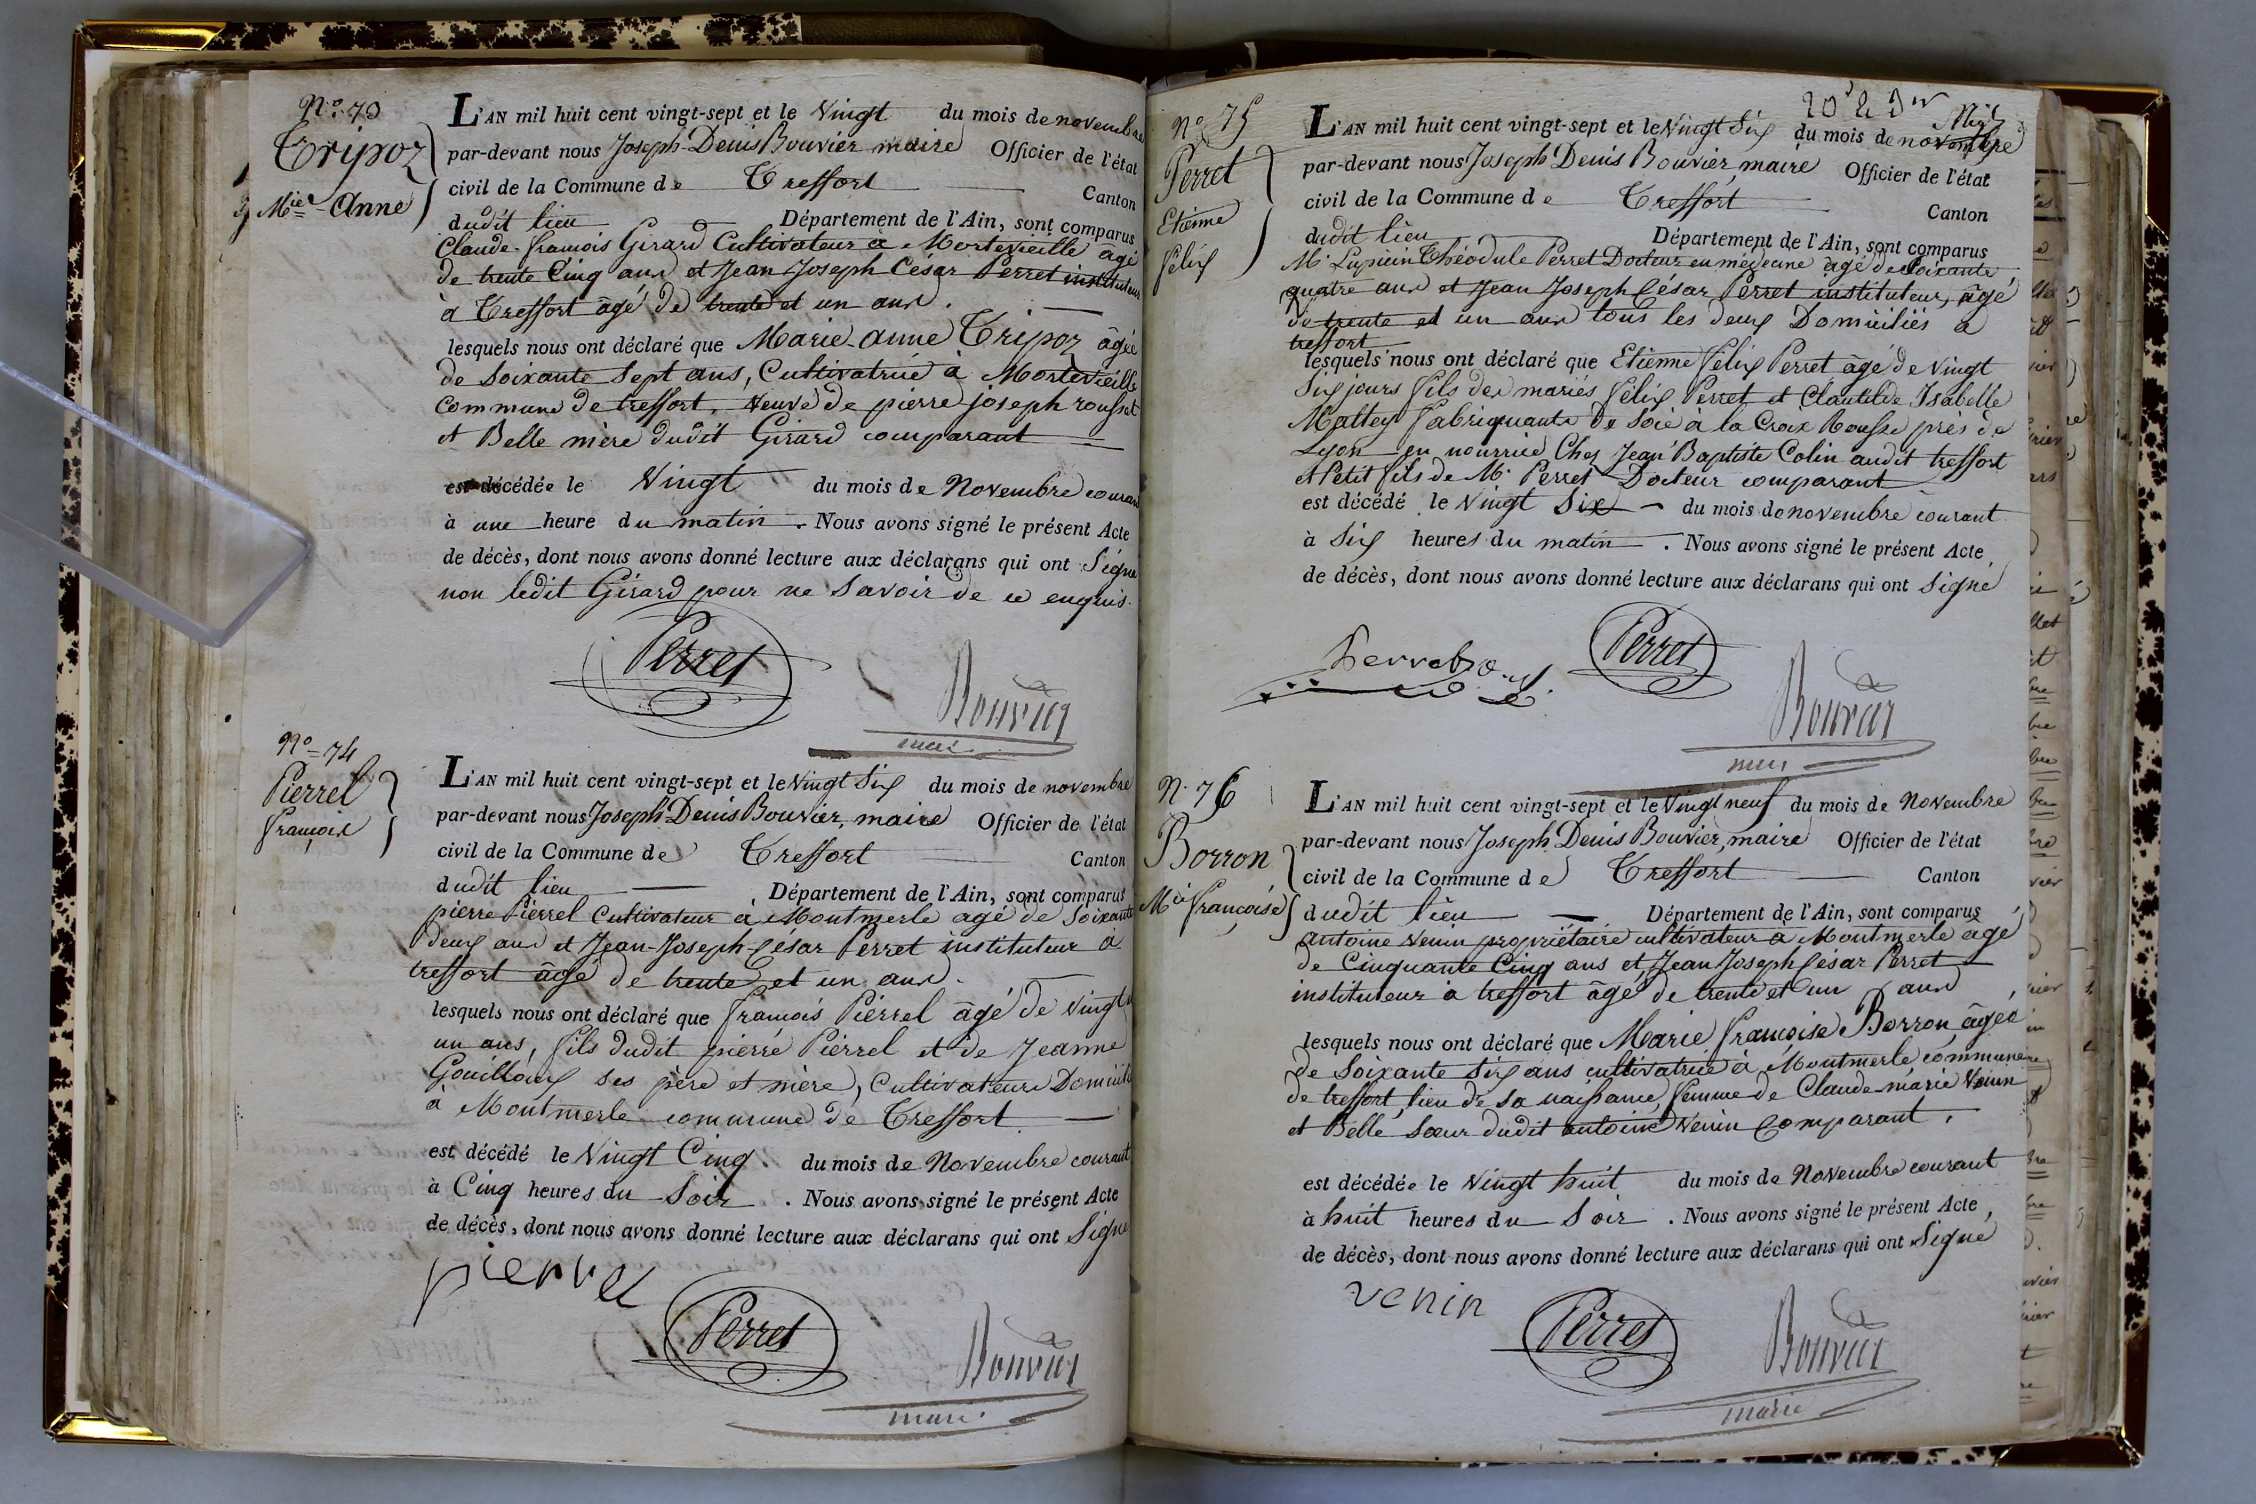 N.° 73
Tripoz
M.ie Anne
L'AN mil huit cent vingt-sept et le Vingt du mois de novembre
par-devant nous Joseph-Denis Bouvier maire Officier de l'état
civil de la Commune de Treffort Canton
dudit lieu Département de l'Ain, sont comparus
Claude-françois Girard Cultivateur à Mortevieille âgé
de trente Cinq ans et Jean Joseph César Perret instituteur
à Treffort âgé de trente et un ans.
lesquels nous ont déclaré que Marie-anne Tripoz âgée
de Soixante Sept ans, Cultivatrice à Mortevieille
commune de treffort, veuve de pierre joseph rousset
et Belle mère dudit Girard comparant
est décédée le Vingt du mois de Novembre courant
à une heure du matin. Nous avons signé le présent Acte
de décès, dont nous avons donné lecture aux déclarans qui ont Signé
non ledit Girard pour ne Savoir de ce enquis.
Perret
Bouvier
maire
N° 74
Pierrel
françois
L'AN mil huit cent vingt-sept et le Vingt Six du mois de novembre
par-devant nous Joseph Denis Bouvier, maire Officier de l'état
civil de la Commune de Treffort Canton
dudit lieu Département de l'Ain, sont comparus
pierre Pierrel Cultivateur à Montmerle agé de Soixante
Deux ans et Jean-Joseph-César Perret instituteur à
treffort âgé de trente et un ans.
lesquels nous ont déclaré que françois Pierrel âgé de Vingt
un ans, fils dudit pierre Pierrel et de Jeanne
Gouilloux ses père et mère, Cultivateurs Domiciliés
à Montmerle commune de Treffort.
est décédé le Vingt Cinq. du mois de Novembre courant
à Cinq heures du Soir. Nous avons signé le présent Acte
de décès, dont nous avons donné lecture aux déclarans qui ont Signé
pierrel
Perret
Bouvier
maire
N° 75
Perret
Etienne
félix
L'AN mil huit cent vingt-sept et le Vingt Six du mois de novembre
par-devant nous Joseph Denis Bouvier, maire Officier de l'état
civil de la Commune de Treffort Canton
dudit lieu Département de l'Ain, sont comparus
Mr. Lupicin Théodule Perret Docteur en médecine âgé de Soixante
quatre ans et Jean Joseph César Perret instituteur, âgé
de trente et un ans tous les deux Domiciliés à
treffort
lesquels nous ont déclaré que Etienne félix Perret âgé de Vingt
Six jours fils des mariés félix Perret et Clautilde Isabelle
Mattey fabriquants de Soie à la Croix Rousse près de
Lyon en nourrice Chez Jean Baptiste Colin audit treffort
et Petit fils de Mr. Perret Docteur comparant
est décédé le Vingt Six du mois de novembre courant
à Six heures du matin. Nous avons signé le présent Acte
de décès, dont nous avons donné lecture aux déclarans qui ont Signé
Perret
Bouvier
maire
N. 76
Borron
M.ie françoise
L'AN mil huit cent vingt-sept et le Vingt neuf du mois de Novembre
par-devant nous Joseph Denis Bouvier, maire Officier de l'état
civil de la Commune de Treffort Canton
dudit lieu Département de l'Ain, sont comparus
antoine Venin propriétaire cultivateur à Montmerle âgé
de Cinquante Cinq ans et Jean Joseph César Perret
instituteur à treffort âgé de trente et un ans
lesquels nous ont déclaré que Marie françoise Borron, âgée
de Soixante Six ans cultivatrice à Montmerle commune
de treffort, lieu de sa naissance, femme de Claude-marie Venin
et Belle soeur dudit antoine Venin Comparant.
est décédée le Vingt huit du mois de Novembre courant
à huit heures du Soir. Nous avons signé le présent Acte,
de décès, dont nous avons donné lecture aux déclarans qui ont Signé
venin
Perret
Bouvier
maire